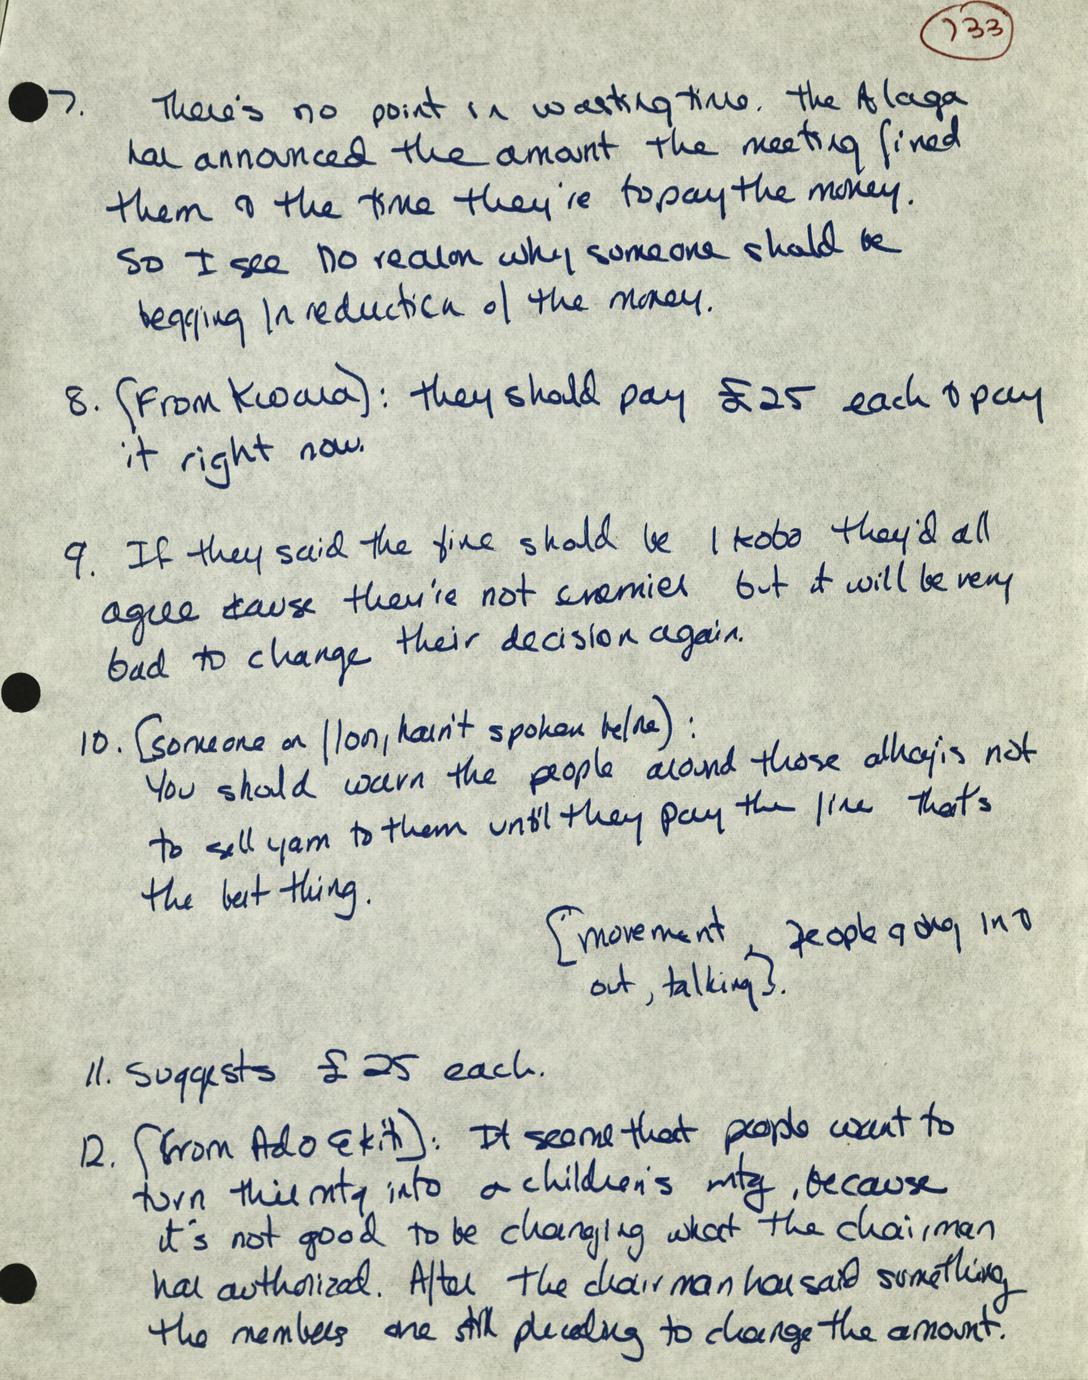 733
7. There's no point in wasting time. The Alaga
has announced the amount the meeting fined
them & the time they're to pay the money.
So I see no reason why someone should be
begging in reduction of the money.
8. (From Kwara): they should pay £25 each & pay
it right now.
9. If they said the fine should be 1 kobo they'd all
agree cause they're not enemies but it will be very
bad to change their decision again.
10. (someone on floor, hasn't spoken before):
You should warn the people around those alhajis not
to sell yam to them until they pay the fine that's
the best thing.
[movement, people going in &
out, talking].
11. Suggests £25 each.
12. (From Ado Ekiti): It seems that people want to
turn this mtg into a children's mtg, because
it's not good to be changing what the chairman
has authorized. After the chairman has said something
the members are still pleading to change the amount.